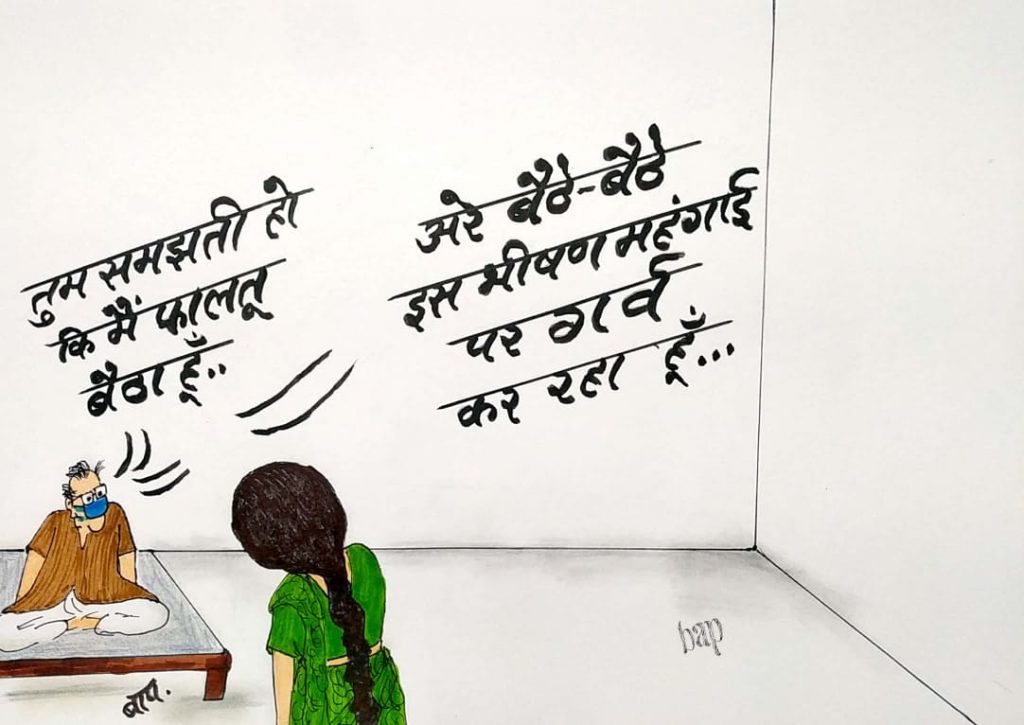 तुम समझती हो
कि मैं फालतू
बैठा हूँ..
अरे बैठे-बैठे
इस भीषण महंगाई
पर गर्व
कर रहा हूँ...
बाप.
bap